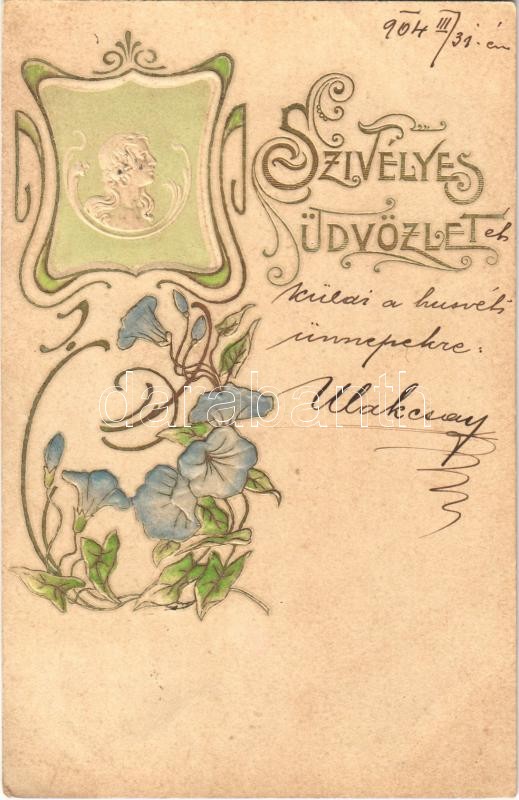 904 III/31-én
SZIVÉLYES
ÜDVÖZLETek
küldi a husvéti
ünnepekre:
Makcsay
darabanth